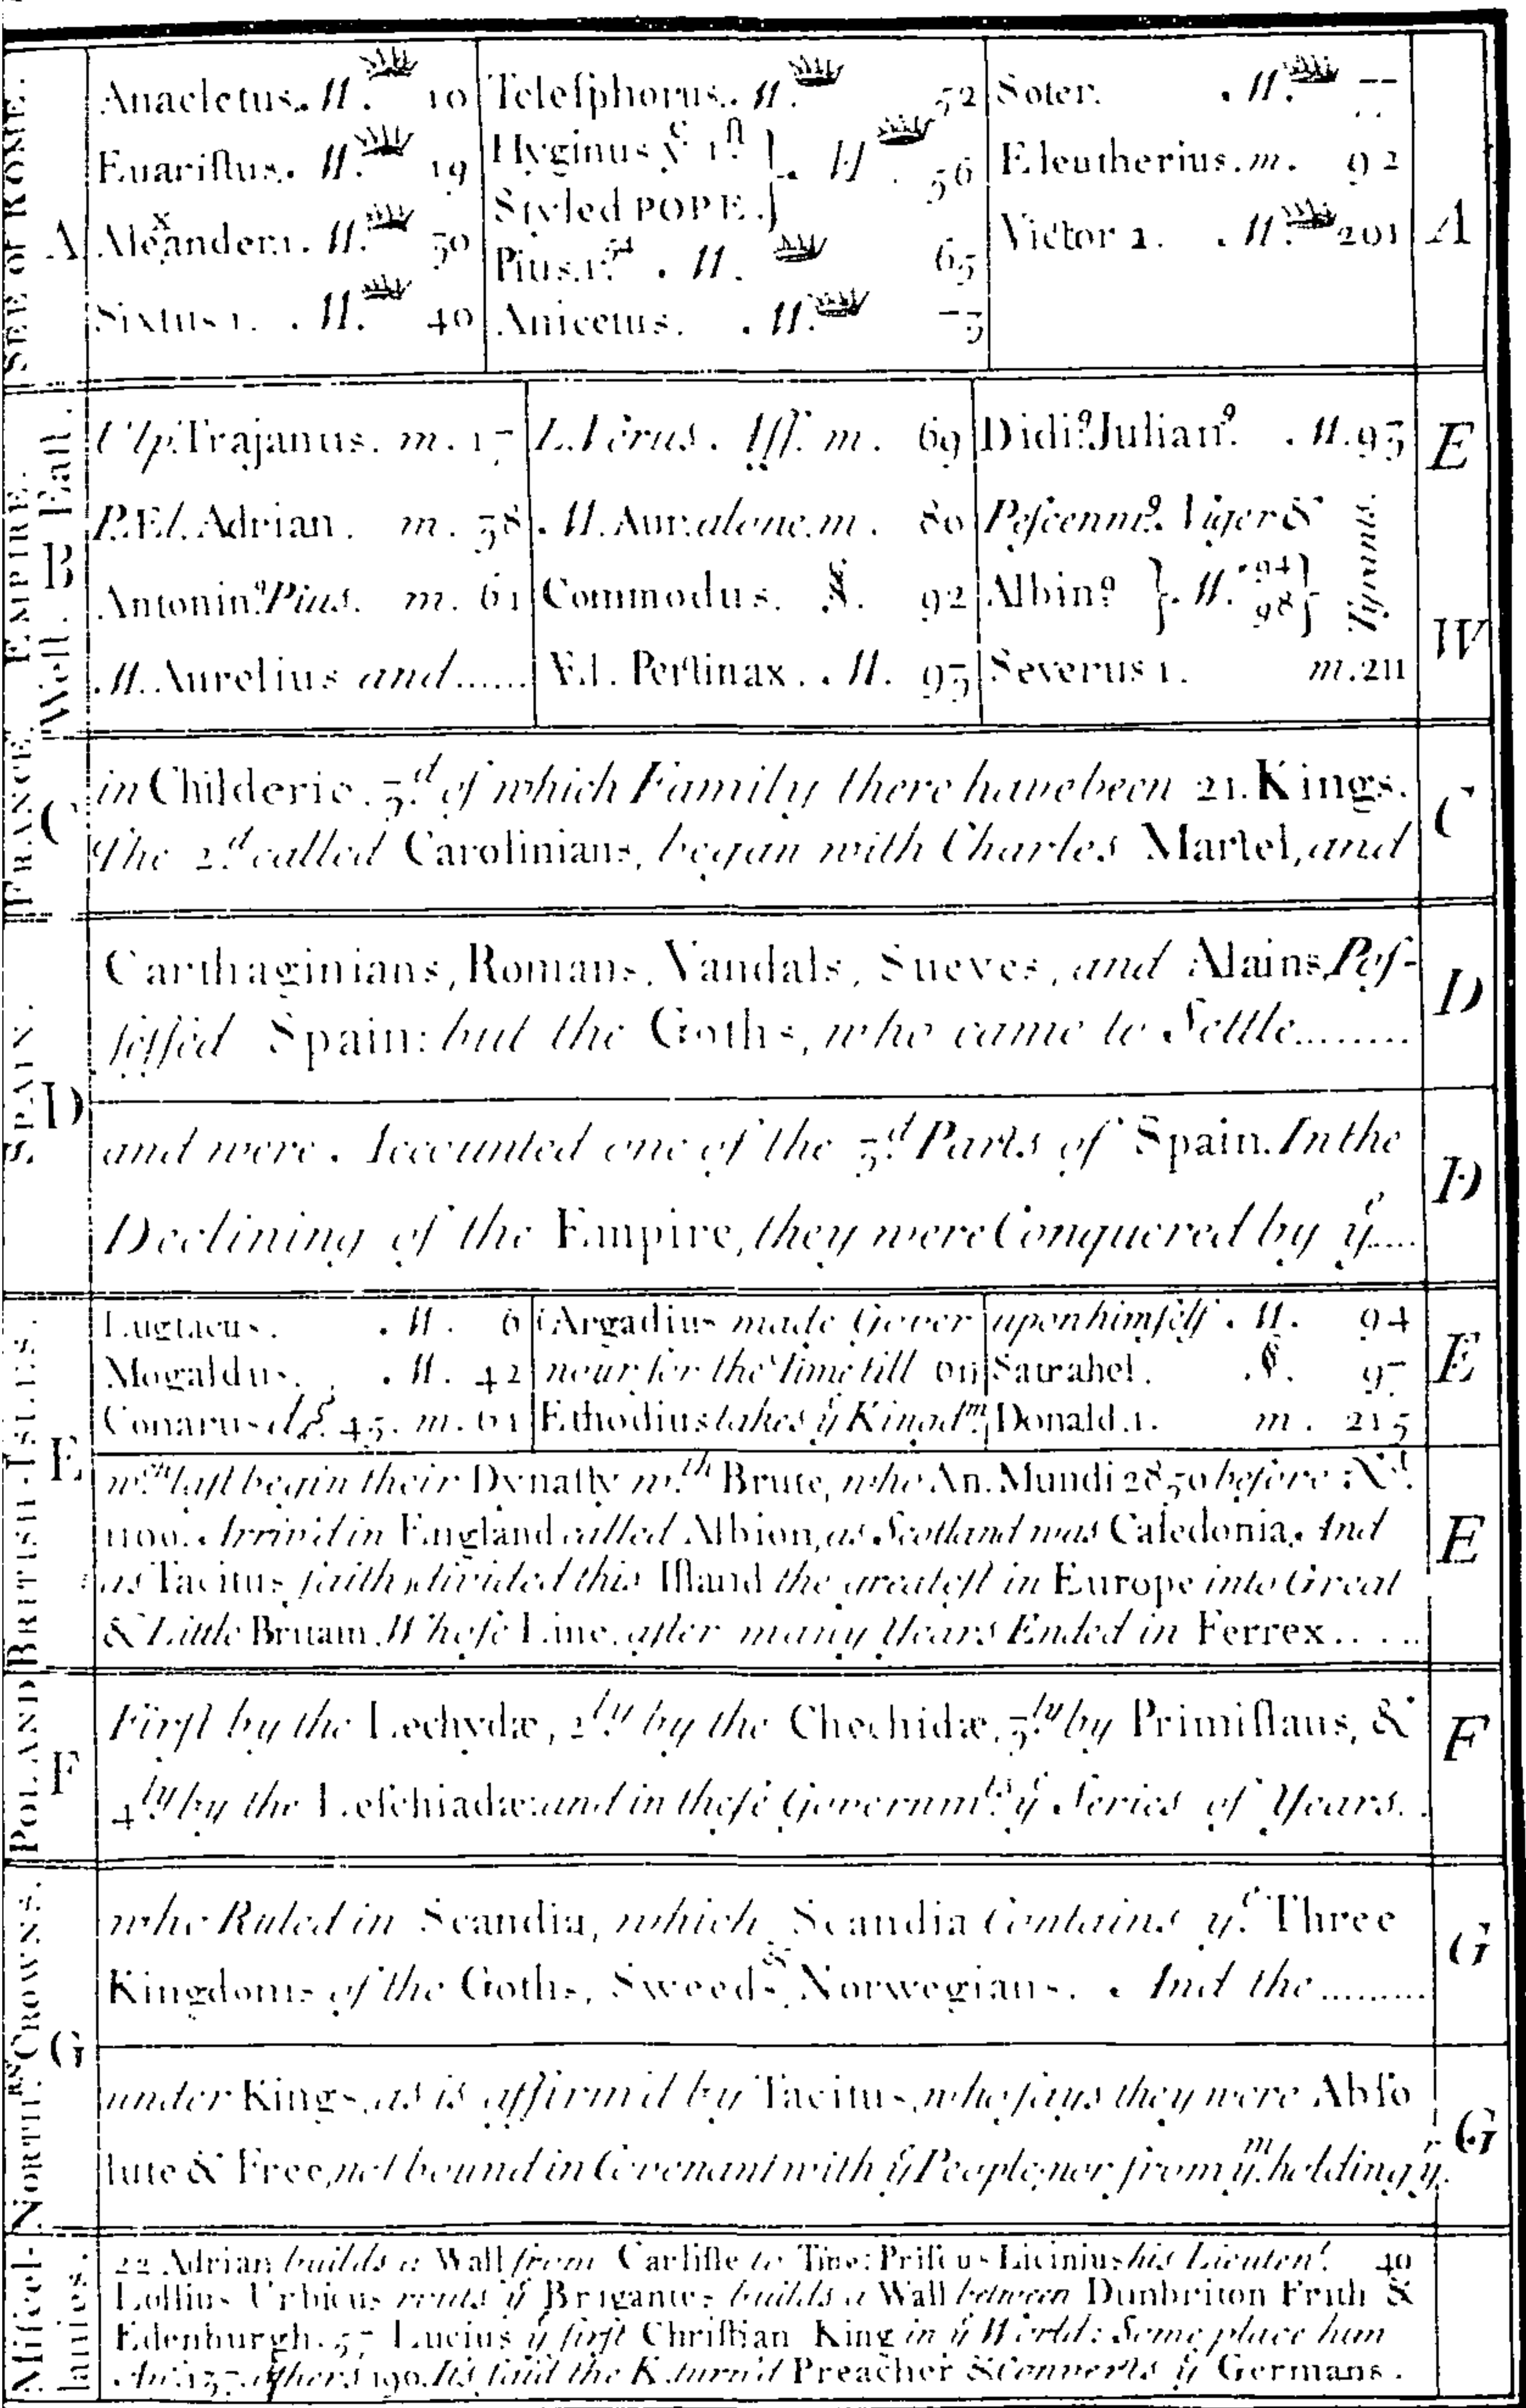 SEE of ROME.
A
Anacletus. M. 10
Euaristus. M. 19
Alexander. 1. M. 30
Sixtus 1. M. 40
Telesphorus. M. 52
Hyginus yͤ 1ſt
Styled POPE. } M. 56
Pius. 1ſt. M. 65
Anicetus. M. 73
Soter. M. 77
Eleutherius. m. 92
Victor 1. M. 201
A
EMPIRE.
West. East.
B
Ulp. Trajanus. m. 17
P. Æl. Adrian. m. 38
Antonin⁹ Pius. m. 61
M. Aurelius and......
L. Verus. Aſſ. m. 69
M. Aur. alone. m. 80
Commodus. 92
Æl. Pertinax. M. 93
Didi⁹ Julian⁹. M. 93
Peſcenni⁹. Niger &
Albin⁹ }. M. 94 98 } Tyrants.
Severus 1. m. 211
E
W
FRANCE.
C
in Childeric. 3.d of which Family there have been 21. Kings.
The 2.d called Carolinians, began with Charles Martel, and
C
SPAIN.
D
Carthaginians, Romans, Vandals, Sueves, and Alains, Poſ-
ſeſſed Spain: but the Goths, who came to Settle.........
D
and were Accounted one of the 3.d Parts of Spain. In the
Declining of the Empire, they were Conquered by yͤ.....
D
BRITISH-ISLES.
E
Lugtacus. M. 6
Mogaldus. M. 42
Conarus dſ. 45. m. 61
(Argadius made Gover
nour for the Time till
Ethodius takes yͤ Kingdm.
upon himſelf. M. 94
Satrahel. 97
Donald. 1. m. 215
E
wch laſt begin their Dynaſty wth Brute, who An. Mundi 2850 before Xt.
1100. Arriv'd in England called Albion, as Scotland was Caledonia. And
as Tacitus ſaith, divided this Iſland the greateſt in Europe into Great
& Little Britain. Whoſe Line, after many Years Ended in Ferrex......
E
POLAND
F
Firſt by the Lechydæ, 2.ly by the Chechidæ, 3.ly by Primiſlaus, &
4.ly by the Leſchiadæ: and in theſe Governmts. yͤ Series of Years.
F
NORTHRN. CROWNS.
G
who Ruled in Scandia, which Scandia Contains yͤ Three
Kingdoms of the Goths, Sweeds, & Norwegians. And the.........
G
under Kings, as is affirm'd by Tacitus, who ſays they were Abſo
lute & Free, not bound in Covenant with yͤ People, nor from ym. holding yr.
G
Miſcel-
lanies.
22 Adrian builds a Wall from Carliſle to Tine: Priſcus Licinius his Lieutent. 40
Lollius Urbicus routs yͤ Brigantes builds a Wall between Dunbriton Frith &
Edenburgh. 57 Lucius yͤ firſt Chriſtian King in yͤ World: Some place him
An. 137. others 190. Its ſaid the K. turn'd Preacher & Converts yͤ Germans.